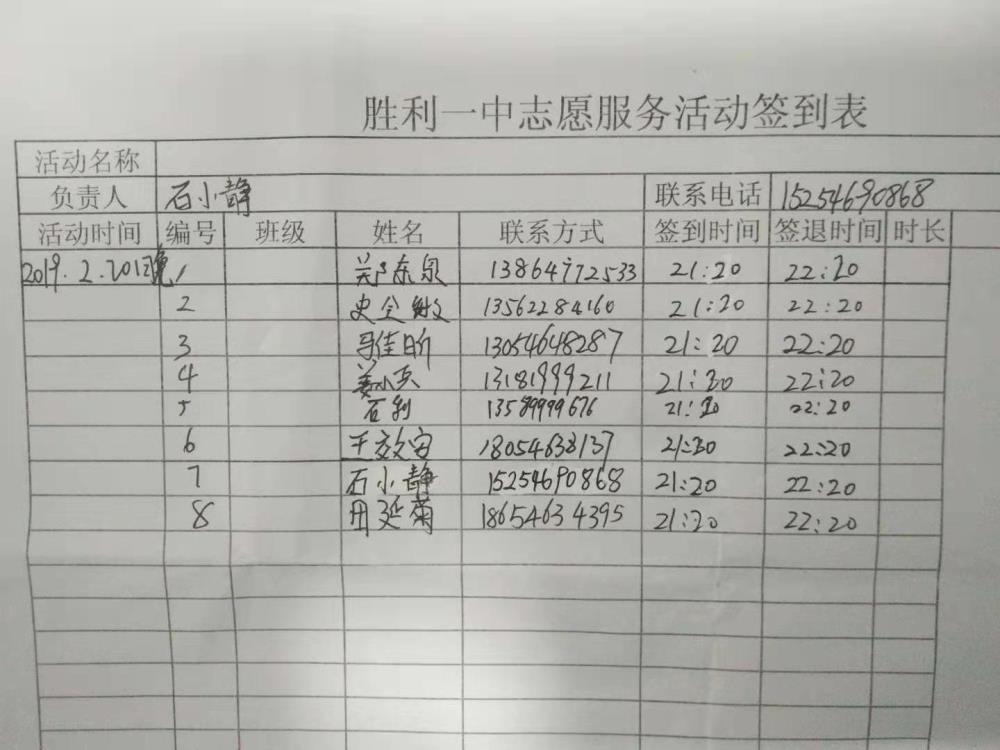 胜利一中志愿服务活动签到表
活动名称
负责人 石小静 联系电话 15254690868
活动时间 编号 班级 姓名 联系方式 签到时间 签退时间 时长
2019.2.20 晚 1 郑东泉 13864772533 21:20 22:20
2 史 13562284160 21:20 22:20
3 佳昕 13054648287 21:20 22:20
4 姜小兵 13181999211 21:20 22:20
5 石利 13589999676 21:20 22:20
6 王效安 18054638137 21:20 22:20
7 石小静 15254690868 21:20 22:20
8 田延菊 18654634395 21:20 22:20